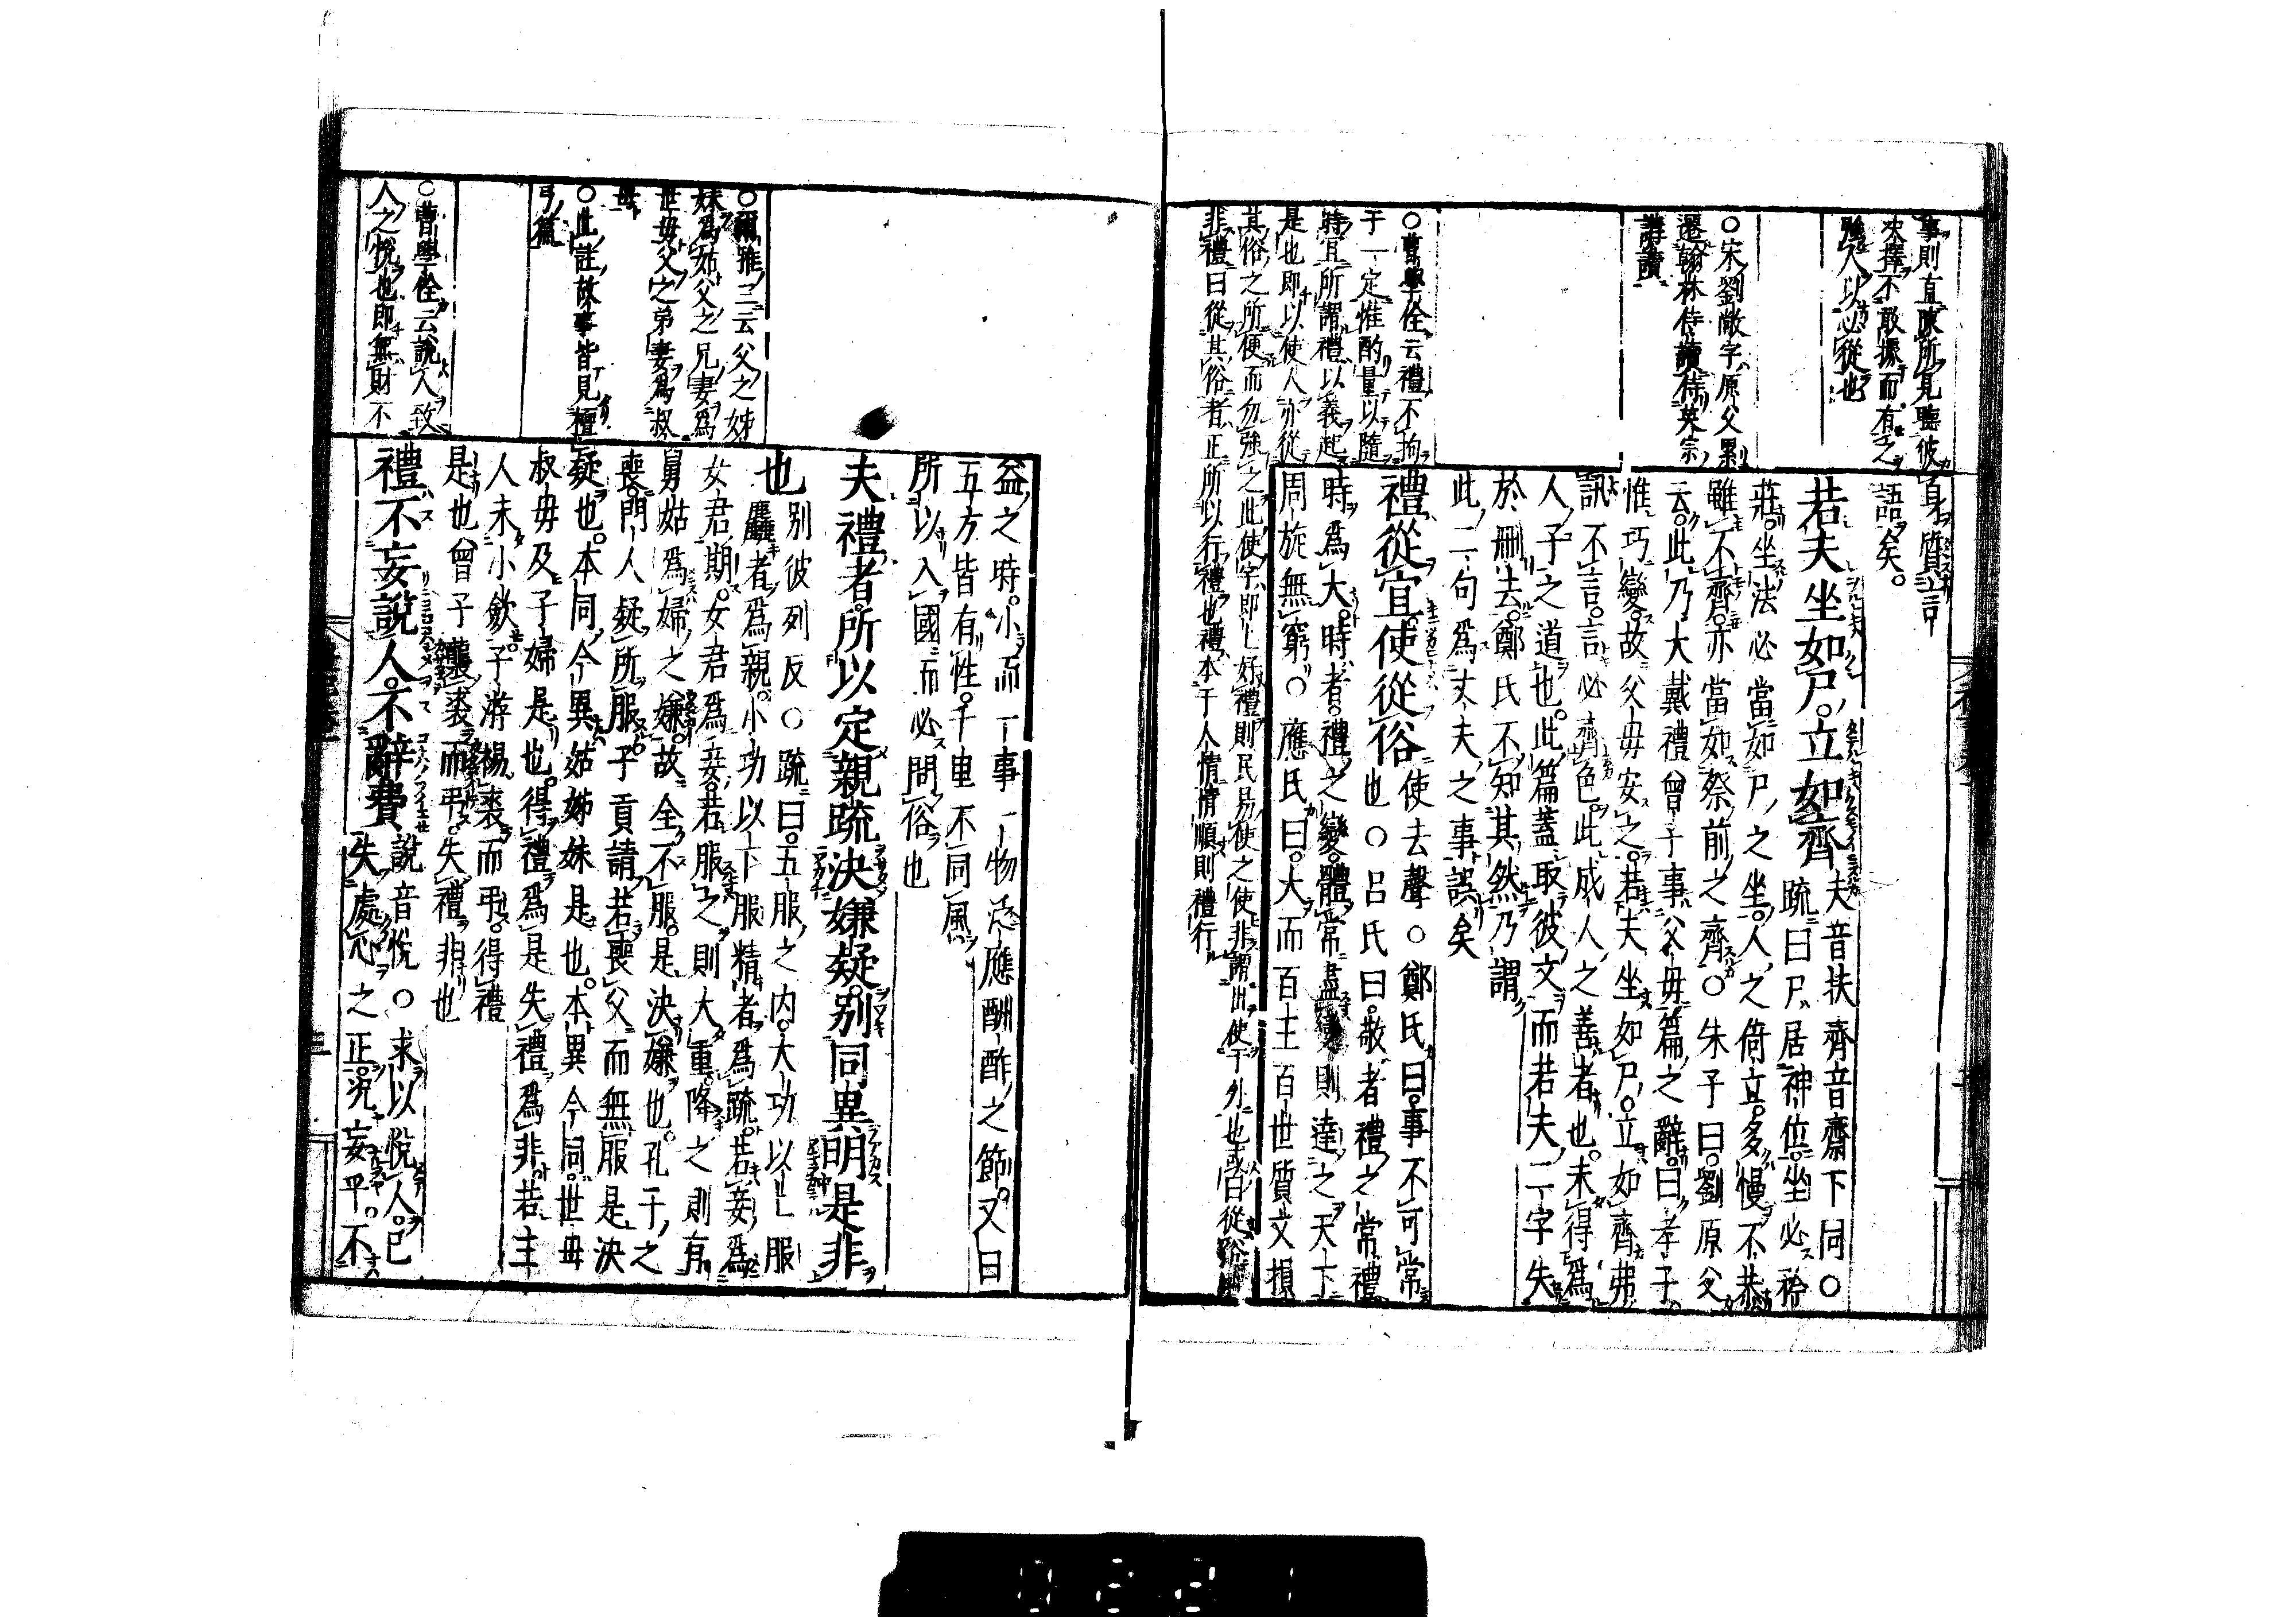 事則直陳所見聽彼
決擇不敢據而有之
強人以必從也
○宋劉敞字原父累
遷翰林侍讀侍英宗
講讀
○曹學佺云禮不拘
于一定惟酌量以隨
時宜所謂禮以義起
是也即以使人亦從
其俗之所便而勿強之此使字即上好禮則民易使之使非謂出使于外也或曰從俗
非禮曰從其俗者正所以行禮也禮本于人情情順則禮行
身質言
語矣
若夫坐如尸。立如齊夫音扶齊音齋下同○
疏曰尸居神位。坐必衿
莊。坐法必當如尸之坐。人之倚立。多慢不恭
雖不齊。亦當如祭前之齊○朱子曰。劉原父
云。此乃大戴禮曾子事父母篇之辭。曰孝子
惟巧變。故父母安之。若夫坐如尸。立如齊弗
訊不言。言必齊色。此成人之善者也。未得為
人子之道也。此篇蓋取彼文。而若夫二字失
於刪去。鄭氏不知其然。乃謂
此二句為丈夫之事誤矣
禮從宜。使從俗使去聲○鄭氏曰。事不可常
也○呂氏曰。敬者禮之常。禮
時為大。時者。禮之變。體常盡變。則達之天下
周旋無窮。○應氏曰。大而百王百世質文損
益之時。小而一事一物泛應酬酢之節。又曰
五方皆有性。千里不同風
所以入國而必問俗也
夫禮者。所以定親疏決嫌疑。別同異明是非
也別彼列反○疏曰。五服之内。大功以上服
麤者為親。小功以下服精者為疏。若妾為
女君期。女君為妾。若服之則大重。降之則有
舅姑為婦之嫌。故全不服。是決嫌也。孔子之
喪。門人疑所服子貢請若喪父而無服是決
疑也。本同今異姑姊妹是也。本異今同。世母
叔母及子婦是也。得禮為是失禮為非若主
人未小斂子游裼裘而弔。得禮
是也曾子襲裘而弔。失禮非也
禮不妄說人。不辭費說音悅○求以悅人。已
失處心之正。況妄乎。不
○爾雅云父之姊
妹為姑父之兄妻為
世母父之弟妻為叔
母
○此註故事皆見檀
弓篇
○曹學佺云說人致
人之悅也即無財不
三